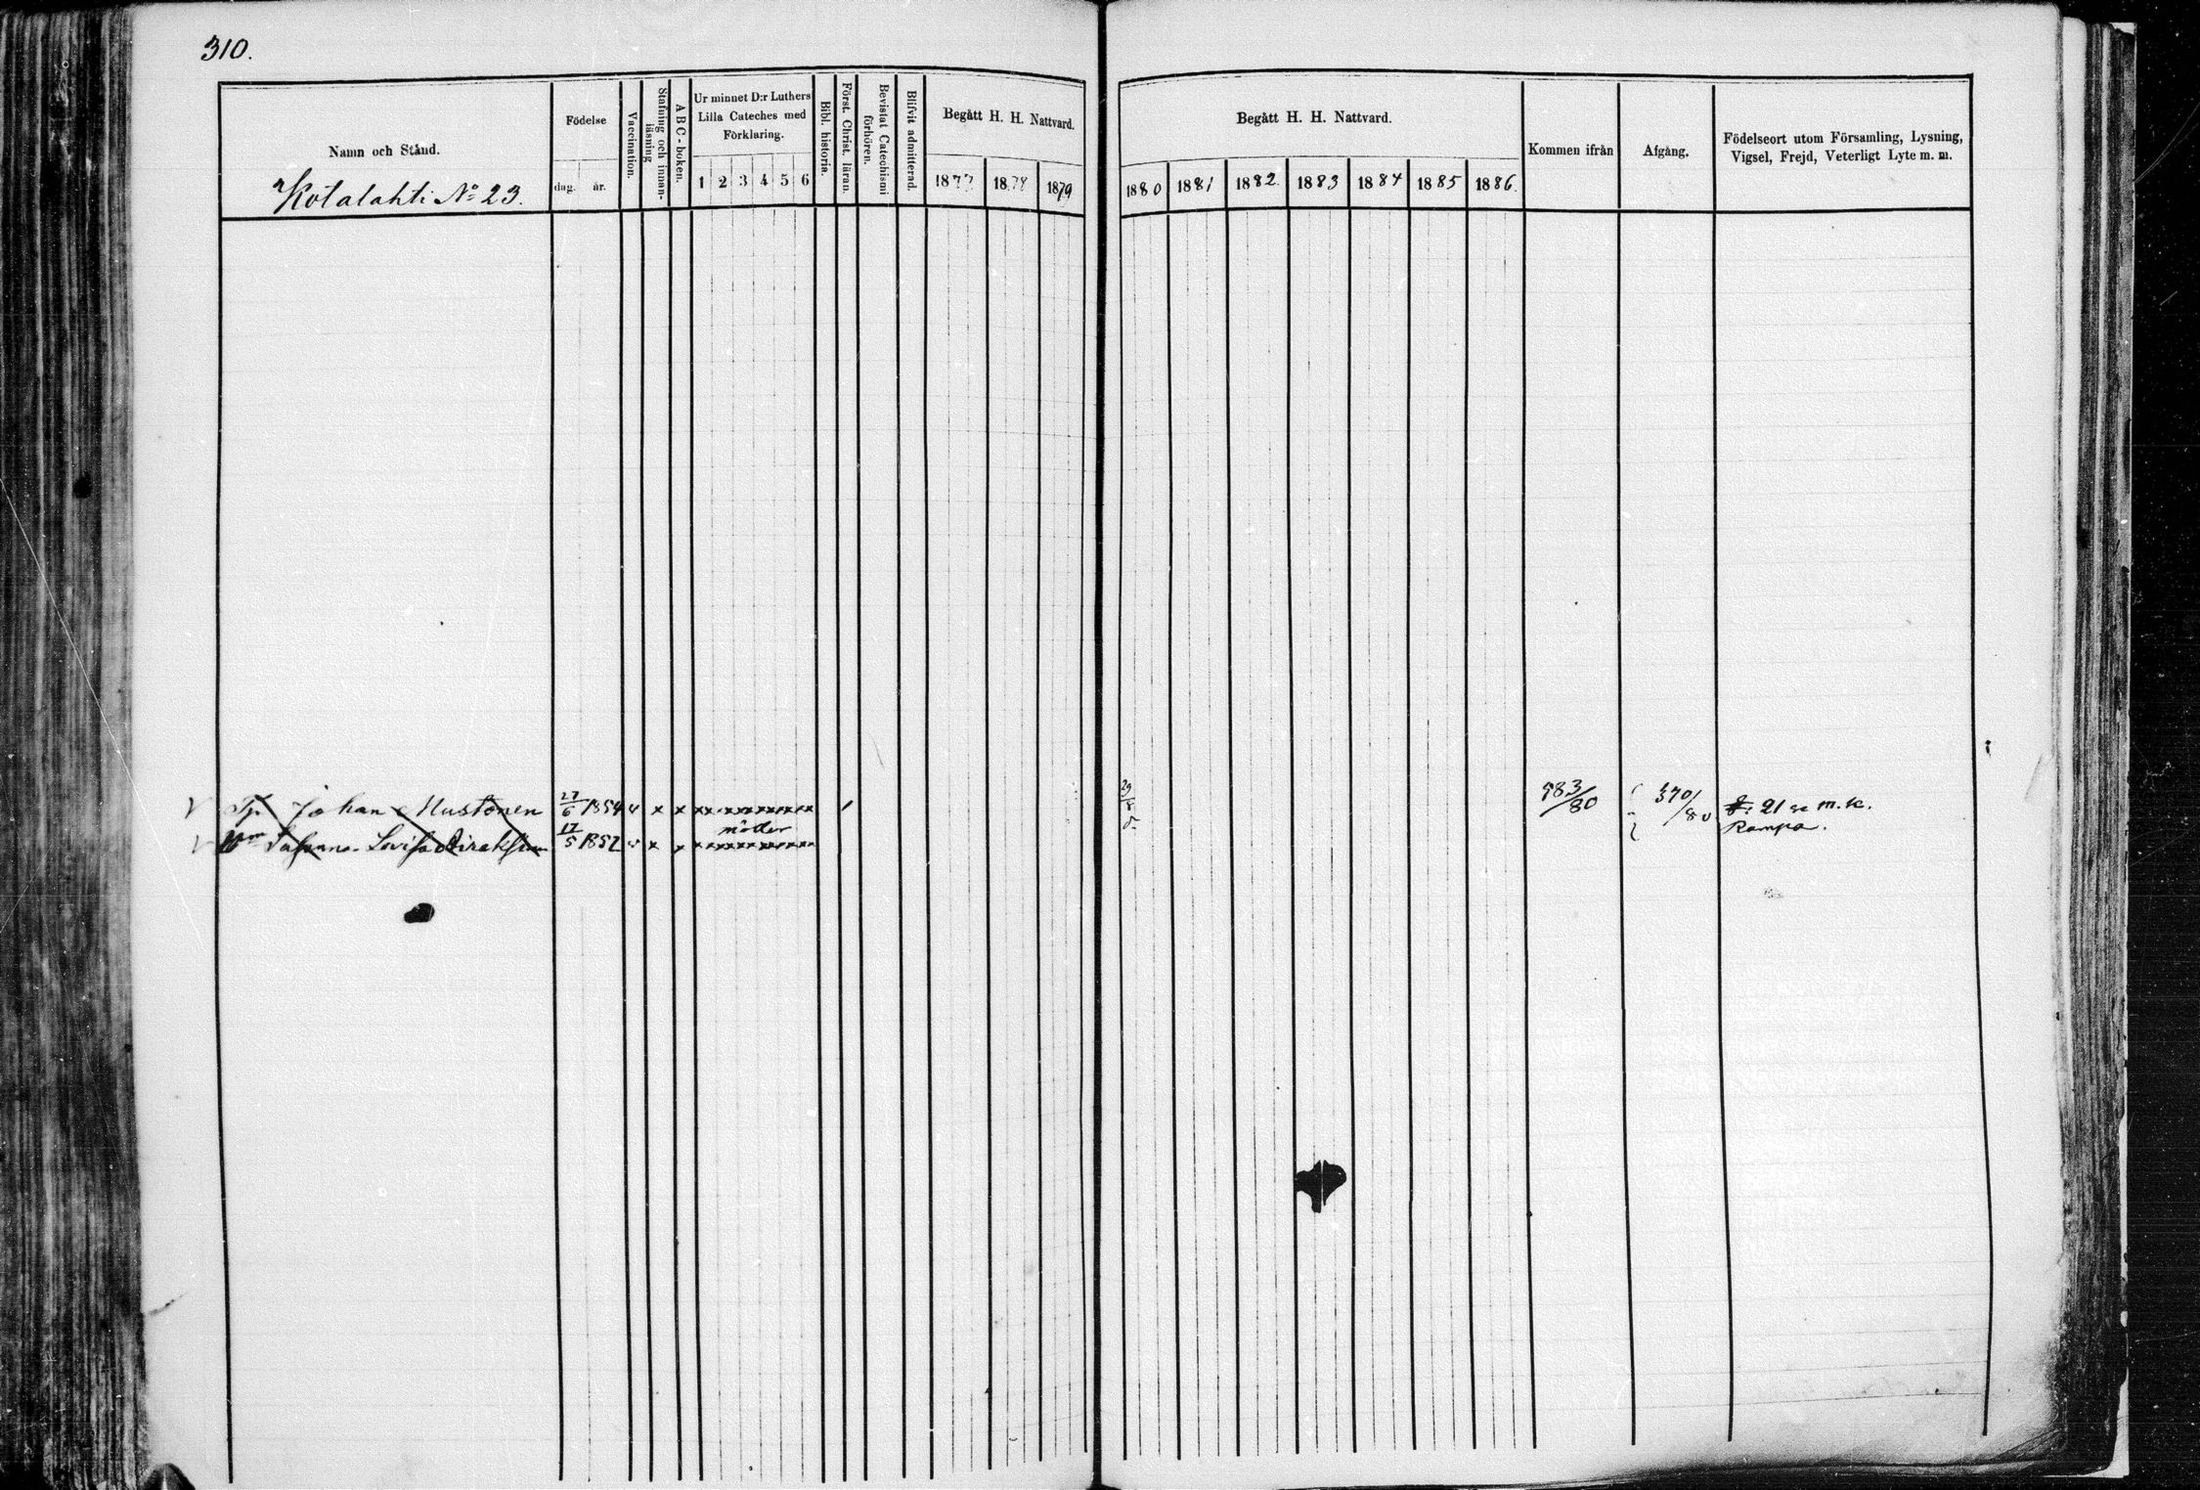 310.
Namn och Stånd.
Kotalahti No 23.
Födelse
dag. år.
Vaccination.
Stafning och innan-
läsning
ABC-boken.
Ur minnet D:r Luthers
Lilla Cateches med
Förklaring.
1 2 3 4 5 6
Bibl. historia.
Först. Christ. läran.
Bevistat Catechismi
förhören.
Blifvit admitterad.
Begått H. H. Nattvard.
1877 1878 1879
Begått H. H. Nattvard.
1880 1881 1882 1883 1884 1885 1886
Kommen ifrån
Afgång.
Födelseort utom Församling, Lysning,
Vigsel, Frejd, Veterligt Lyte m. m.
Johan Mustonen 27/6 1854 v x x xx xxxxxxxx / 29/8 983/80 370/80 21 m. k.
möder Rampa.
Lovisa 17/5 1852 v x x xxxxxxxxxxx